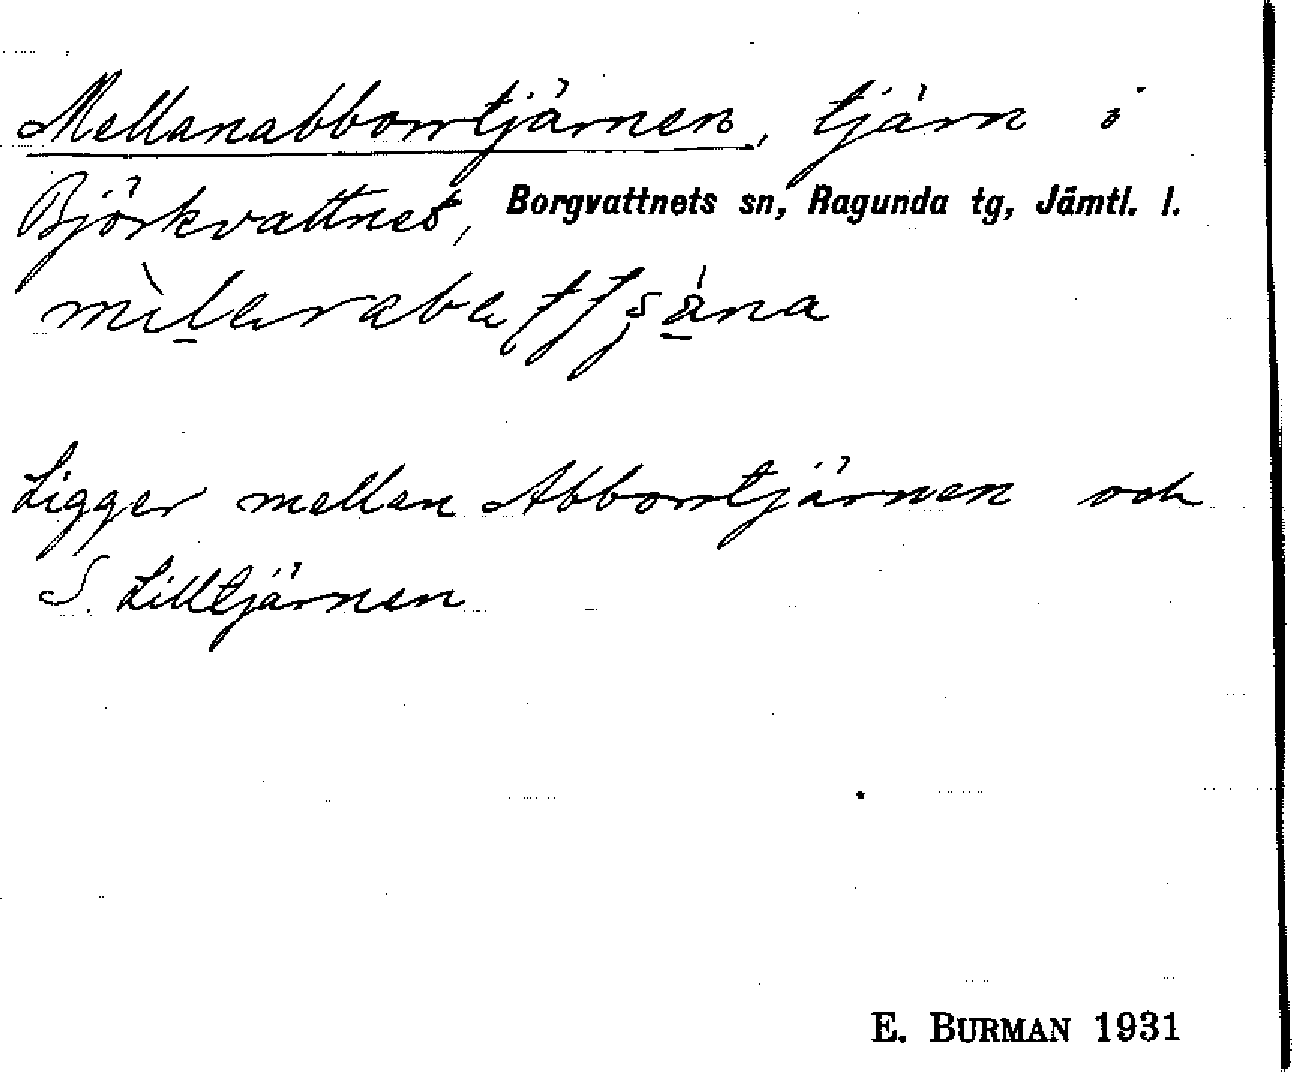 Mellanabborrtjärnen, tjärn i
Björkvattnet, Borgvattnets sn, Ragunda tg, Jämtl. l.
Ligger mellan Abborrtjärnen och
S. Lilltjärnen
E. BURMAN 1931